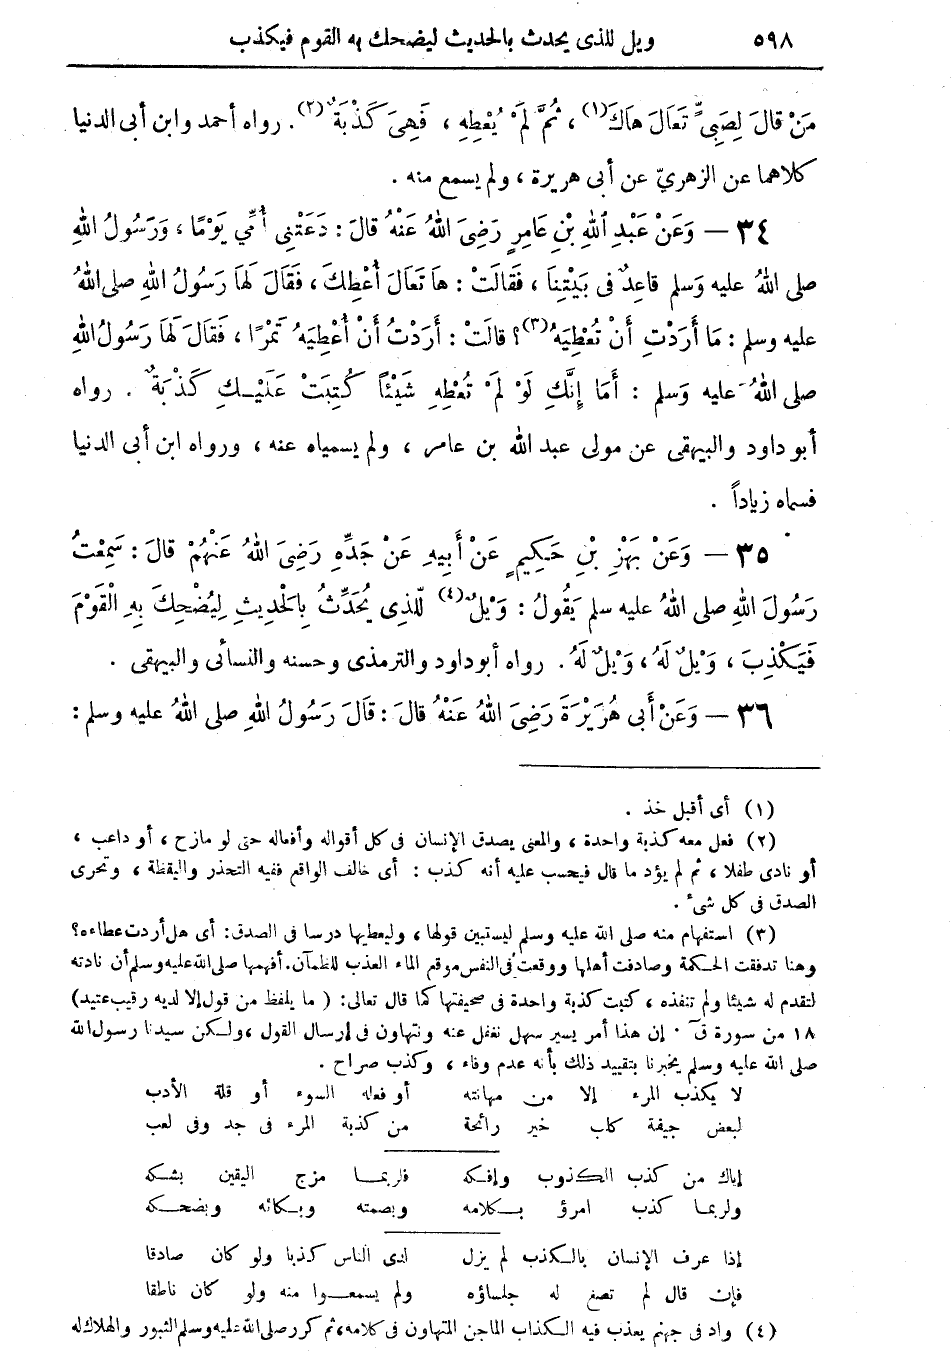 ٥٩٨ ويل للذى يحدث بالحديث ليضحك به القوم فيكذب
مَنْ قالَ لِصَبِىٍّ تَعَالَ هَاكَ(١)، ثُمَّ لَمْ يُعْطِهِ ، فَهِىَ كَذْبَةٌ(٢). رواه أحمد وابن أبى الدنيا
كلاهما عن الزهرىّ عن أبى هريرة ، ولم يسمع منه .
٣٤ — وَعَنْ عَبْدِ اللهِ بْنِ عَامِرٍ رَضِىَ اللهُ عَنْهُ قالَ : دَعَتْنِى أُمِّي يَوْمًا ، وَرَسُولُ اللهِ
صلى اللهُ عليه وَسلم قاعِدٌ فى بَيْتِنَا ، فَقَالَتْ : هَا تَعَالَ أُعْطِكَ ، فَقَالَ لَهَا رَسُولُ اللهِ صلى اللهُ
عليه وسلم : مَا أَرَدْتِ أَنْ تُعْطِيَهُ(٣)؟ قالَتْ : أَرَدْتُ أَنْ أُعْطِيَهُ تَمْرًا ، فَقَالَ لَهَا رَسُولُ اللهِ
صلى اللهُ عليه وَسلم : أَمَا إِنَّكِ لَوْ لَمْ تُعْطِهِ شَيْئًا كُتِبَتْ عَلَيْكِ كَذْبَةٌ . رواه
أبو داود والبيهقى عن مولى عبد الله بن عامر ، ولم يسمياه عنه ، ورواه ابن أبى الدنيا
فسماه زياداً .
٣٥ — وَعَنْ بَهْزِ بْنِ حَكِيمٍ عَنْ أَبِيهِ عَنْ جَدِّهِ رَضِىَ اللهُ عَنْهُمْ قالَ : سَمِعْتُ
رَسُولَ اللهِ صلى اللهُ عليه سلم يَقُولُ : وَيْلٌ(٤) لِلَّذِى يُحَدِّثُ بِالْحَدِيثِ لِيُضْحِكَ بِهِ الْقَوْمَ
فَيَكْذِبَ ، وَيْلٌ لَهُ ، وَيْلٌ لَهُ . رواه أبو داود والترمذى وحسنه والنسائى والبيهقى .
٣٦ — وَعَنْ أَبِى هُرَيْرَةَ رَضِىَ اللهُ عَنْهُ قالَ : قَالَ رَسُولُ اللهِ صلى اللهُ عليه وسلم :
(١) أى أقبل خذ .
(٢) فعل معه كذبة واحدة ، والمعنى يصدق الإنسان فى كل أقواله وأفعاله حتى لو مازح ، أو داعب ،
أو نادى طفلا ، ثم لم يؤد ما قال فيحسب عليه أنه كذب : أى خالف الواقع ففيه التحذر واليقظة ، وتحرى
الصدق فى كل شىء .
(٣) استفهام منه صلى الله عليه وسلم ليستبين قولها ، وليعطيها درسا فى الصدق : أى هل أردت عطاءه ؟
وهنا تدفقت الحكمة وصادفت أهلها ووقعت فى النفس موقع الماء العذب للظمآن . أفهمها صلى الله عليه وسلم أن نادته
لتقدم له شيئا ولم تنفذه ، كتبت كذبة واحدة فى صحيفتها كما قال تعالى : ( ما يلفظ من قول إلا لديه رقيب عتيد )
١٨ من سورة قٓ . إن هذا أمر يسير سهل نغفل عنه ونتهاون فى إرسال القول ، ولكن سيدنا رسول الله
صلى الله عليه وسلم يخبرنا بتقييد ذلك بأنه عدم وفاء ، وكذب صراح .
لا يكذب المرء إلا من مهانته أو فعله السوء أو قلة الأدب
لبعض جيفة كلب خير رائحة من كذبة المرء فى جد وفى لعب
إياك من كذب الكذوب وإفكه فلربما مزج اليقين بشكه
ولربما كذب امرؤ بكلامه وبصمته وبكائه وبضحكه
إذا عرف الإنسان بالكذب لم يزل لدى الناس كذبا ولو كان صادقا
فإن قال لم تصغ له جلساؤه ولم يسمعوا منه ولو كان ناطقا
(٤) واد فى جهنم يعذب فيه الكذاب الماجن المتهاون فى كلامه ، ثم كرر صلى الله عليه وسلم الثبور والهلاك له